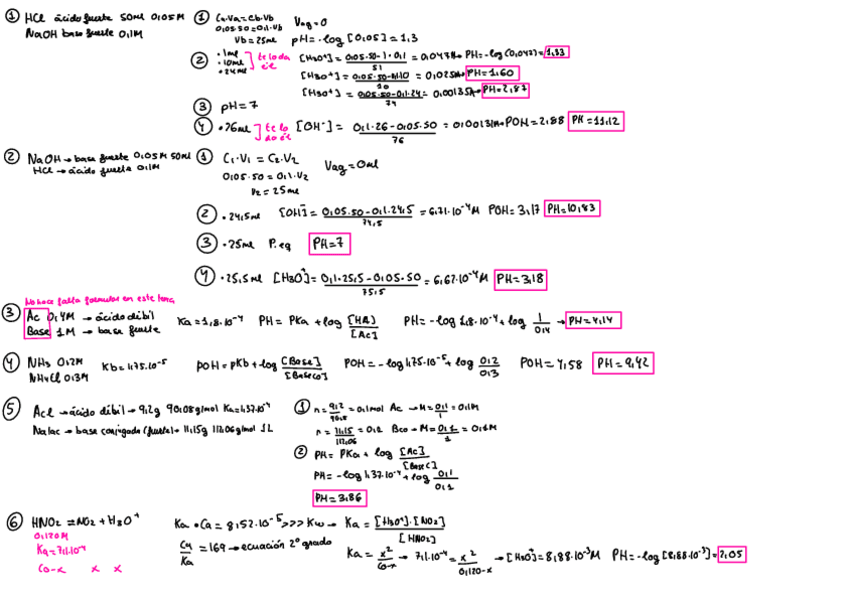 ① HCl ácido fuerte 50ml 0,05M
NaOH base fuerte 0,1M
① Ca·Va = Cb·Vb
0,05·50 = 0,1·Vb
Vb = 25ml
Vag = 0
pH = -log [0,05] = 1,3
② ·1ml
·10ml
·24ml
te lo da él
[H3O+] = 0,05·50-1·0,1 / 51 = 0,047M PH = -log(0,047) = 1,33
[H3O+] = = 0,025M PH = 1,60
[H3O+] = 0,05·50-0,1·24 / 74 = 0,00135M PH = 2,87
③ pH = 7
④ ·26ml te lo da él [OH-] = 0,1·26-0,05·50 / 76 = 0,00131M POH = 2,88 PH = 11,12
② NaOH → base fuerte 0,05M 50ml
HCl → ácido fuerte 0,1M
① C1·V1 = C2·V2
0,05·50 = 0,1·V2
V2 = 25ml
Vag = 0ml
② ·24,5ml [OH-] = 0,05·50-0,1·24,5 / 74,5 = 6,71·10-4M POH = 3,17 PH = 10,83
③ ·25ml P.eq PH = 7
④ ·25,5ml [H3O+] = 0,1·25,5-0,05·50 / 75,5 = 6,62·10-4M PH = 3,18
No hace falta formular en este tema
③ Ac 0,4M → ácido débil
Base 1M → base fuerte
Ka = 1,8·10-4 PH = PKa + log [HA] / [Ac] PH = -log 1,8·10-4 + log 1 / 0,4 → PH = 4,14
④ NH3 0,2M
NH4Cl 0,3M
Kb = 1,75·10-5 POH = pKb + log [Base] / [Baseco] POH = -log 1,75·10-5 + log 0,2 / 0,3 POH = 4,58 PH = 9,42
⑤ Acl → ácido débil → 9,2g 90,08g/mol Ka = 1,37·10-4
Nalac → base conjugada (fuerte) → 11,15g 112,06g/mol 1L
① n = 9,2 / 90,8 = 0,1mol Ac → M = 0,1 / 1 = 0,1M
n = 11,15 / 112,06 = 0,1 Bco → M = 0,1 / 1 = 0,1M
② PH = PKa + log [Ac] / [Base C]
PH = -log 1,37·10-4 + log 0,1 / 0,1
PH = 3,86
⑥ HNO2 ⇌ NO2 + H3O+
0,120M
Ka = 7,1·10-4
Co-x x x
Ka·Ca = 8,52·10-5 >>> Kw → Ka = [H3O+]·[NO2] / [HNO2]
Ca / Ka = 169 → ecuación 2º grado
Ka = x2 / Co-x → 7,1·10-4 = x2 / 0,120-x → [H3O+] = 8,88·10-3M PH = -log [8,88·10-3] = 2,05